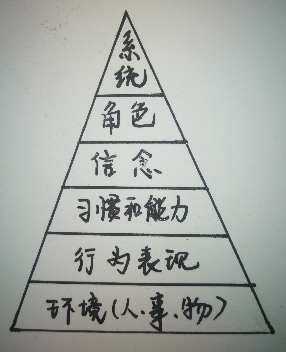 系
统
角色
信念
习惯和能力
行为表现
环境(人、事、物)